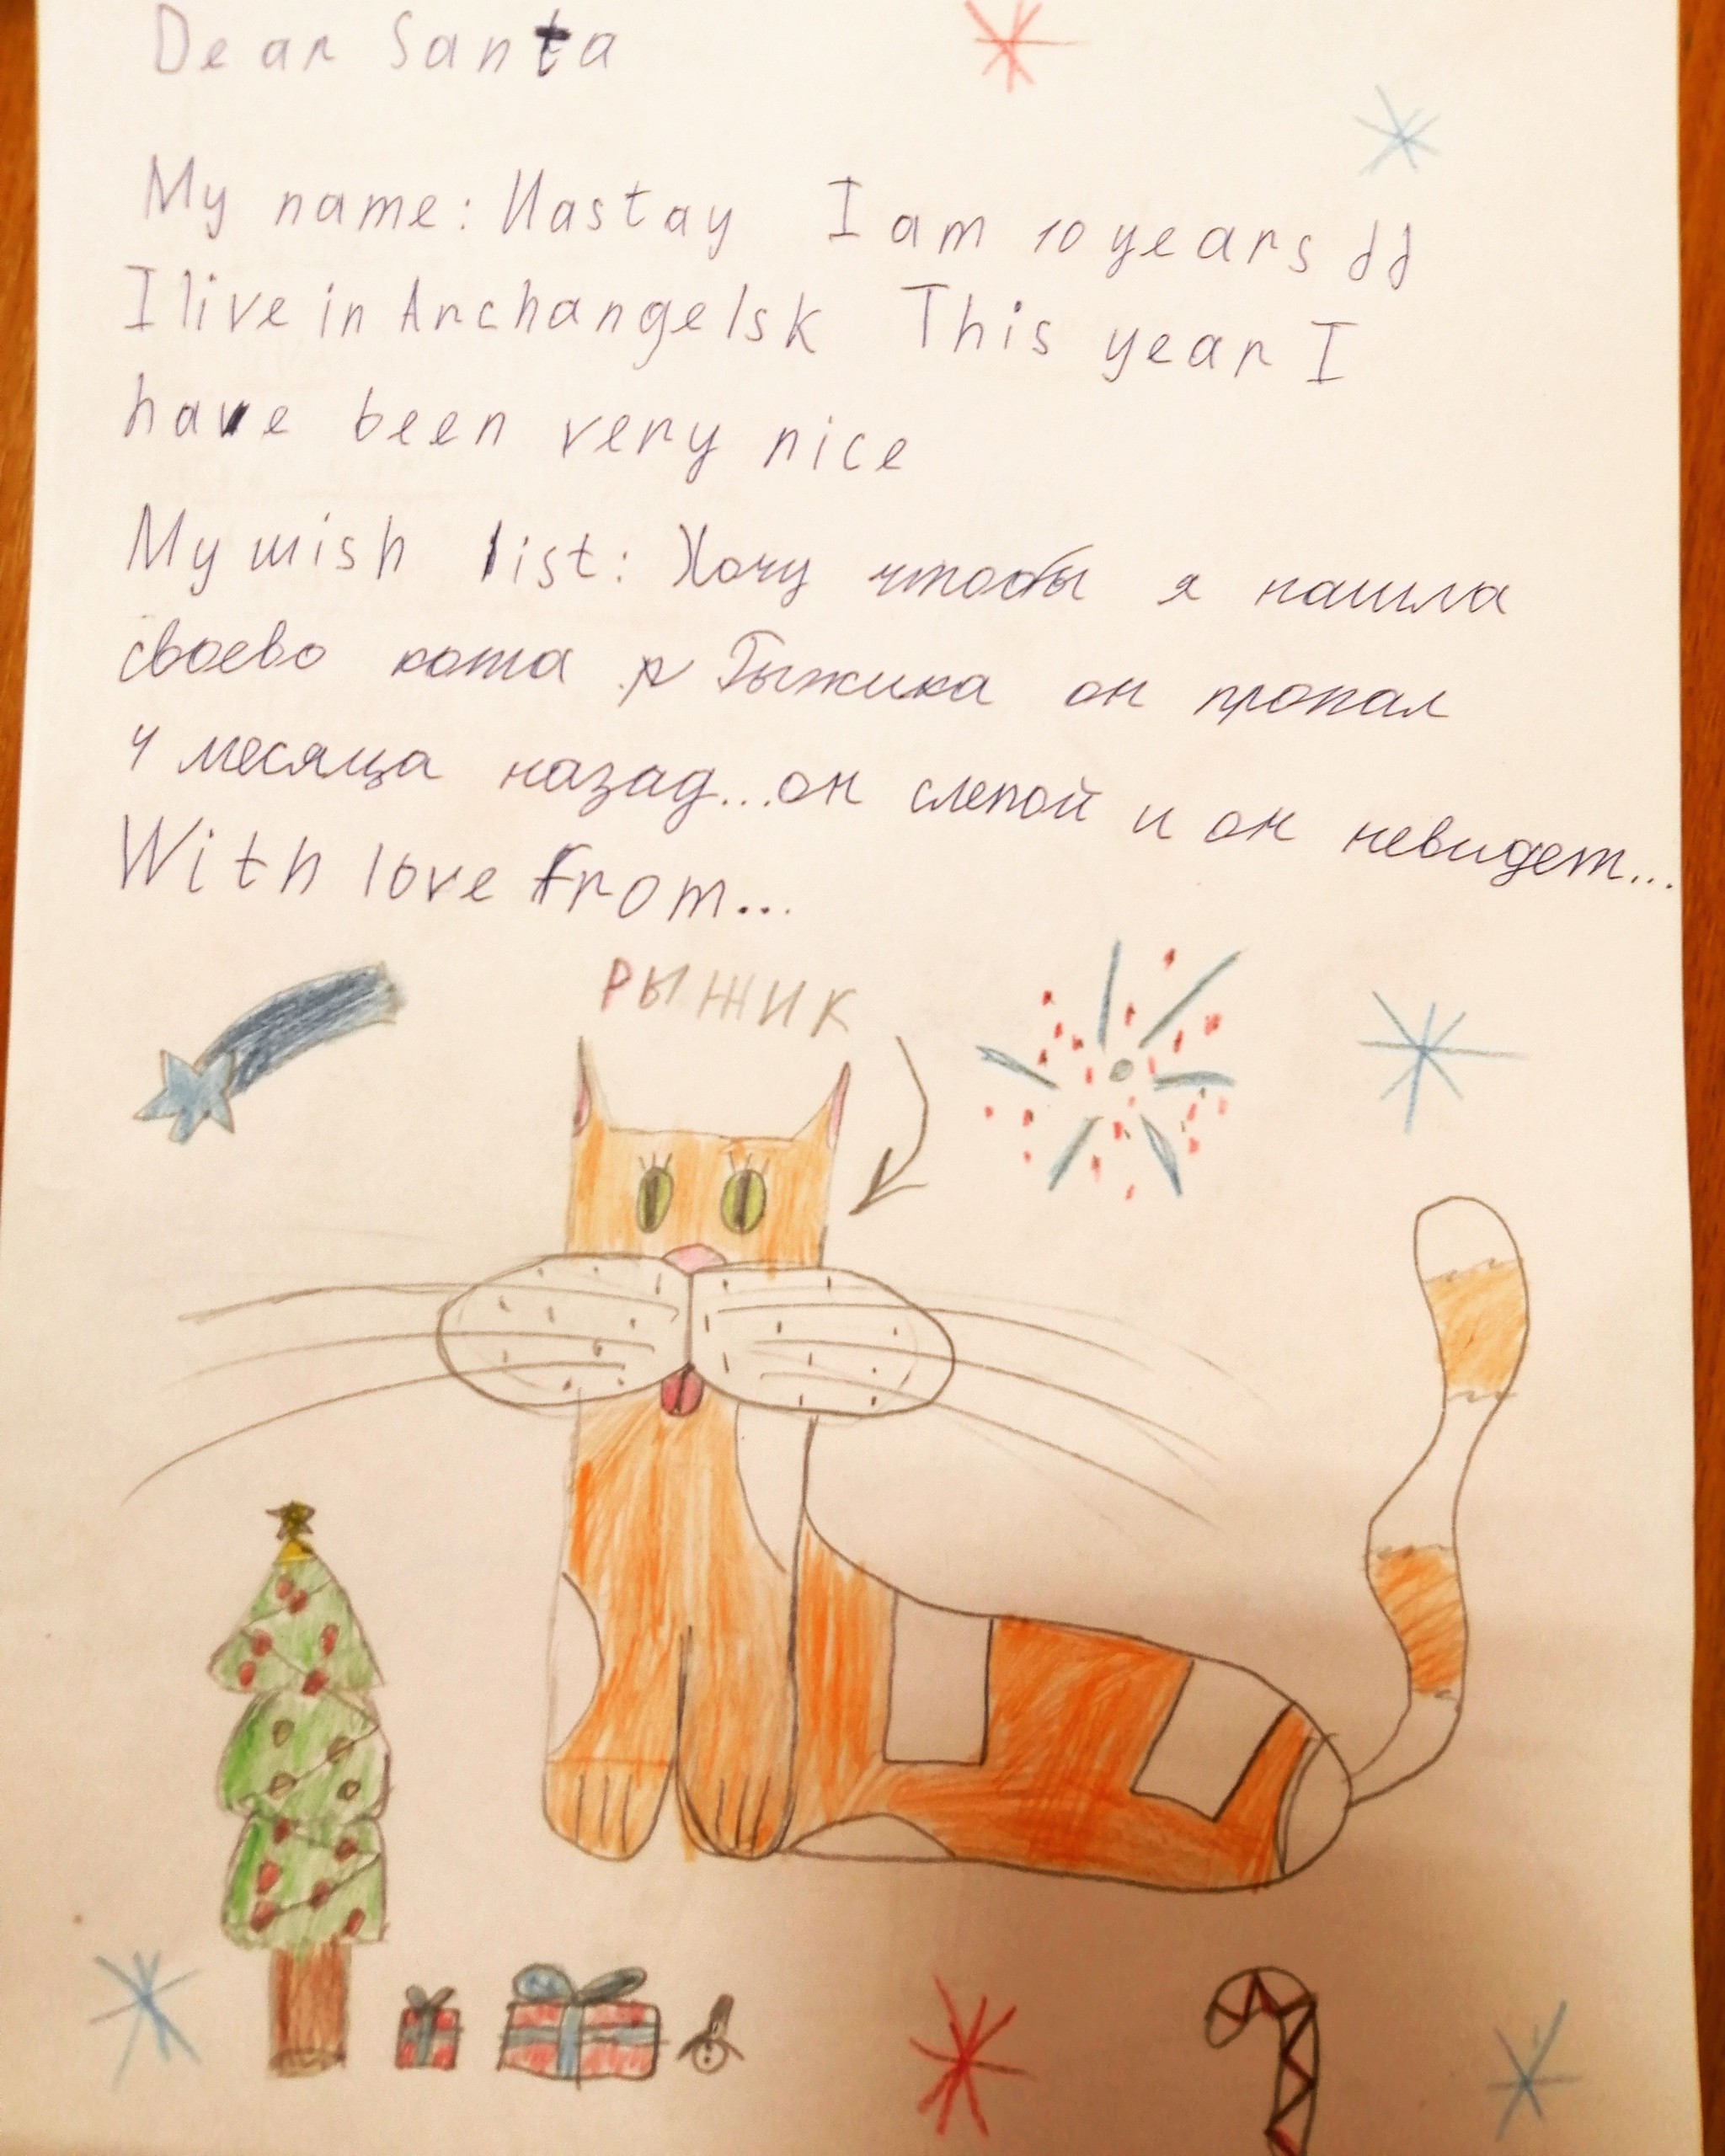 Dear Santa
My name: Nastay I am 10 years
I live in Archangelsk This year I
have been very nice
My wish list: Хочу чтобы я нашла
своево кота Рыжика он пропал
4 месяца назад...он слепой и он невидет...
With love from...
РЫЖИК